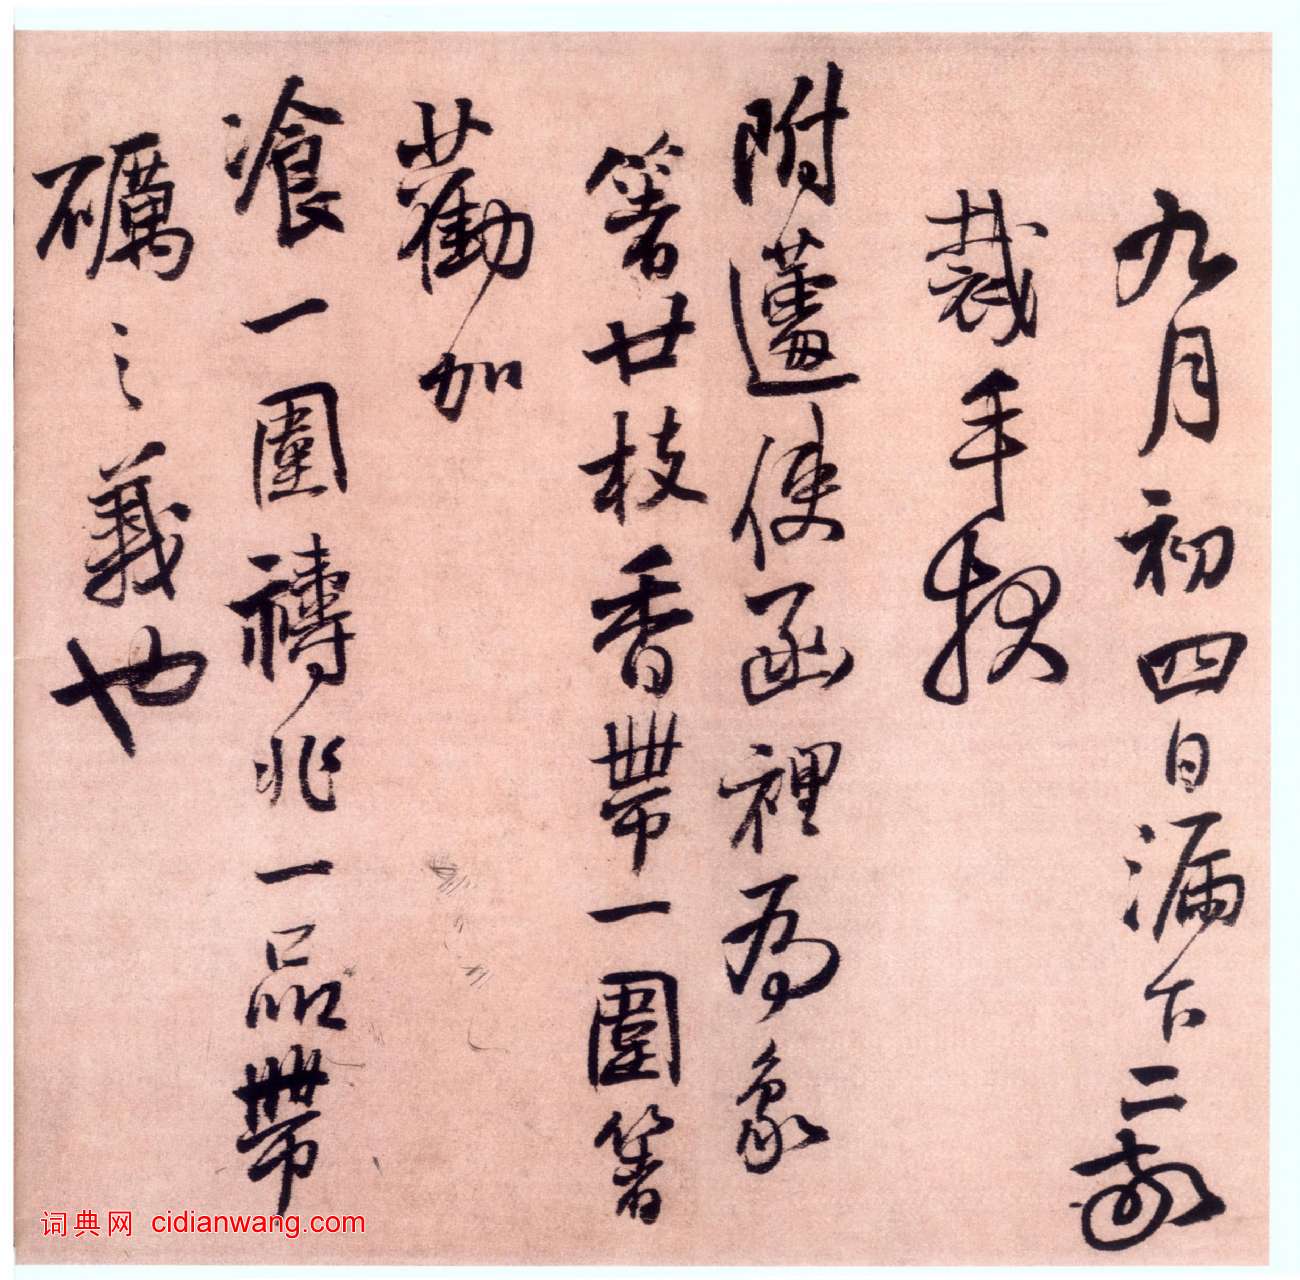 九月初四日漏下二刻
裁手
附蘧使函裡為象
箸廿枝香帶一圍箸
勸加
飡一圍禱兆一品帶
礪之義也
词典网 cidianwang.com